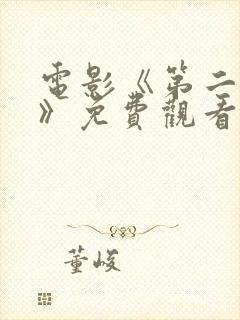 電影《第二
》免費觀看
董峻